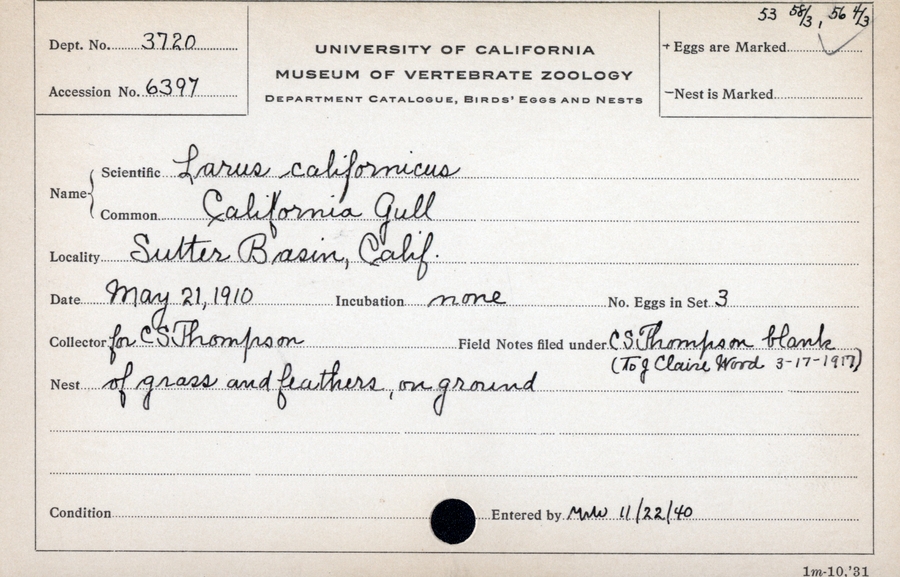 53 58/3, 56 4/3
Dept. No. 3720
Accession No. 6397
UNIVERSITY OF CALIFORNIA
MUSEUM OF VERTEBRATE ZOOLOGY
DEPARTMENT CATALOGUE, BIRDS' EGGS AND NESTS
+ Eggs are Marked
- Nest is Marked
Name { Scientific Larus californicus
Common California Gull
Locality Sutter Basin, Calif.
Date May 21, 1910 Incubation none No. Eggs in Set 3
Collector for C S Thompson Field Notes filed under C S Thompson blank
(To J Claire Wood 3-17-1917)
Nest of grass and feathers, on ground
Condition Entered by MW 11/22/40
1m-10,'31